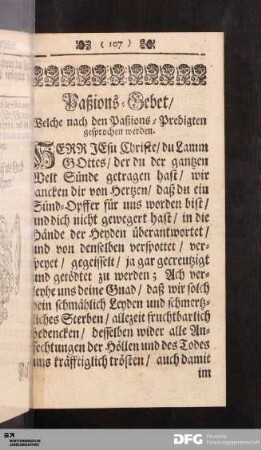 ( 107 )
Paßions-Gebet/
Welche nach den Paßions-Predigten
gesprochen werden.
HERR JEsu Christe/ du Lamm
GOttes/ der du der gantzen
Welt Sünde getragen hast/ wir
dancken dir von Hertzen/ daß du ein
Sünd-Opffer für uns worden bist/
und dich nicht gewegert hast/ in die
Hände der Heyden überantwortet/
und von denselben verspottet/ ver-
speyet/ gegeisselt/ ja gar gecreutzigt
und getödtet zu werden; Ach ver-
leyhe uns deine Gnad/ daß wir solch
dein schmählich Leyden und schmertz-
liches Sterben/ allezeit fruchtbarlich
bedencken/ desselben wider alle An-
fechtungen der Höllen und des Todes
uns kräfftiglich trösten/ auch damit
im
WÜRTTEMBERGISCHE
LANDESBIBLIOTHEK
DFG Deutsche
Forschungsgemeinschaft